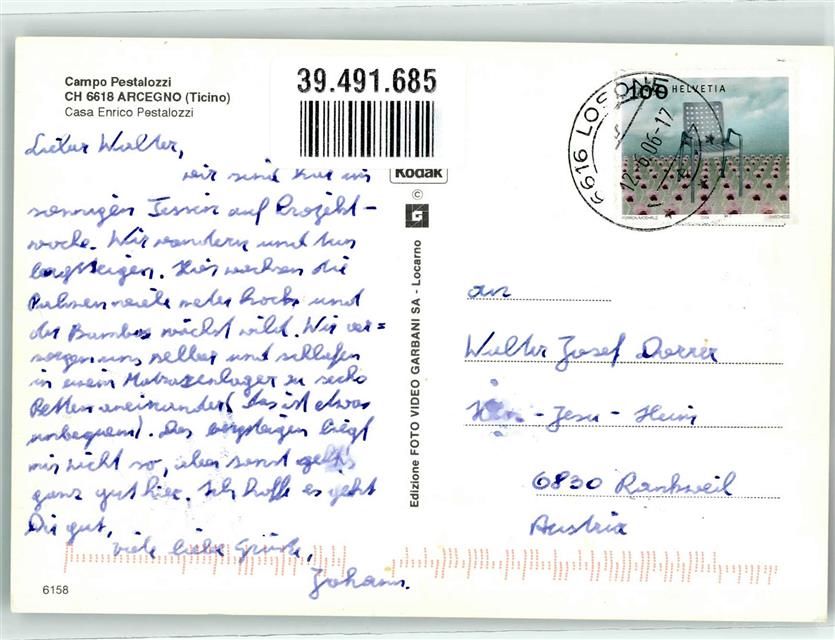 Campo Pestalozzi
CH 6618 ARCEGNO (Ticino)
Casa Enrico Pestalozzi
39.491.685
Kodak
©
G
Edizione FOTO VIDEO GARBANI SA - Locarno
100 HELVETIA
6616 LOSONE
12.6.06-17
Lieber Walter,
wir sind hier im
sonnigen Tessin auf Projekt-
woche. Wir wandern und tun
bergsteigen. Hier wachsen die
Palmen viele meter hoch und
der Bambus wächst wild. Wir ver=
sorgen uns selber und schlafen
in einem Matrazenlager zu sechs
Betten aneinander (das ist etwas
unbequem). Das bergsteigen liegt
mir nicht so, aber sonst geht's
ganz gut hier. Ich hoffe es geht
Dir gut,
viele liebe Grüsse,
Johann.
an
Walter Josef Dorrer
Herz-Jesu-Heim
6830 Rankweil
Austria
6158